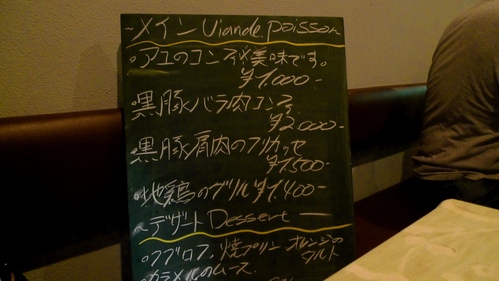 ~メイン Viande. poisson
○アユのコンフィ×美味です。
¥1,000-
黒豚バラ肉コンフィ
¥2000-
黒豚肩肉のフリカッセ
¥1500-
○地鶏のグリル ¥1,400-
~デザート Dessert
○クグロフ、焼プリン オレンジの
タルト
○カラメルのムース、